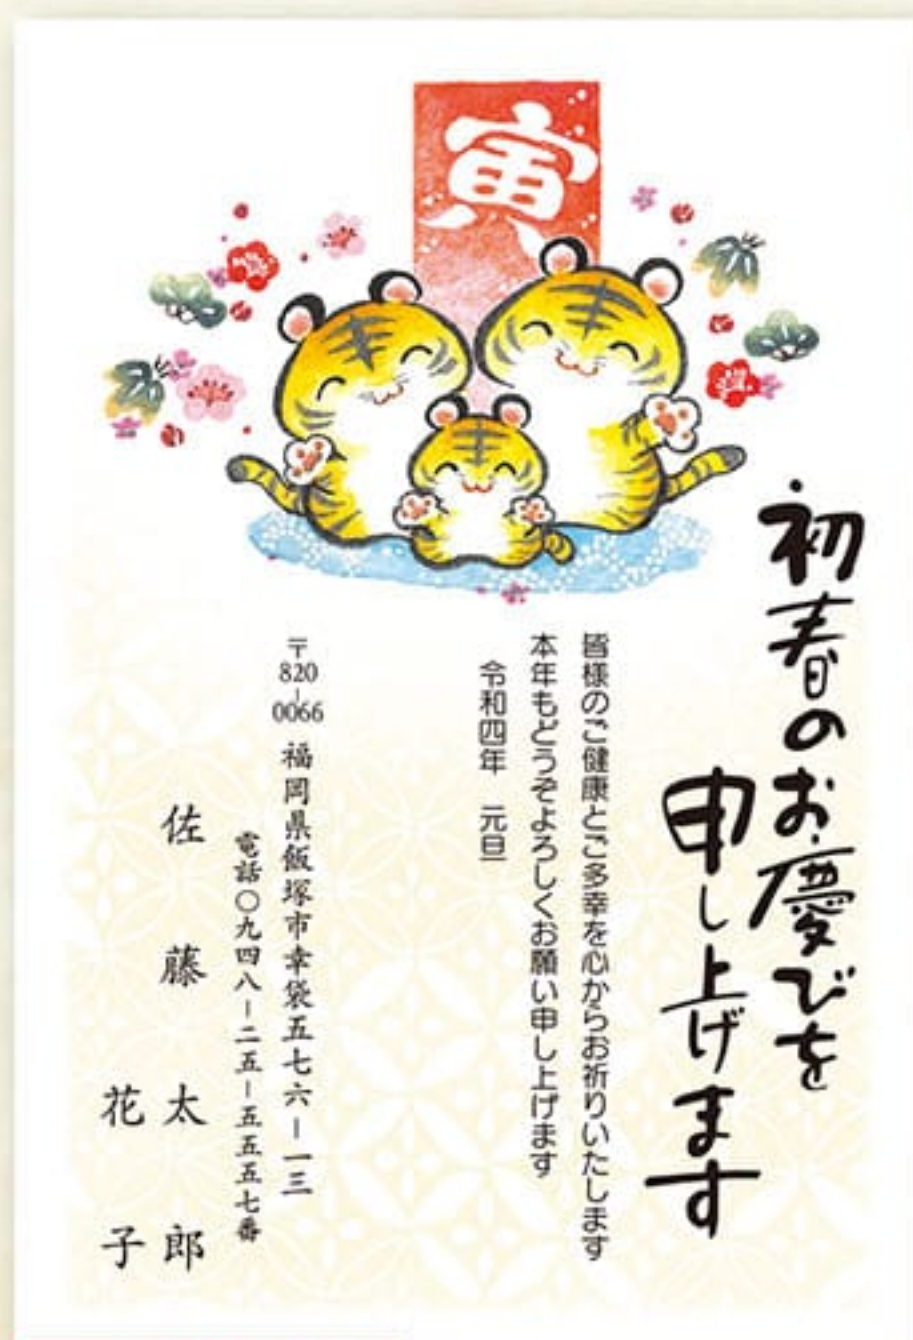 寅
初春のお慶びを
申し上げます
皆様のご健康とご多幸を心からお祈りいたします
本年もどうぞよろしくお願い申し上げます
令和四年　元旦
〒820-0066 福岡県飯塚市幸袋五七六－一三
電話〇九四八－二五－五五五七番
佐藤太郎
花子